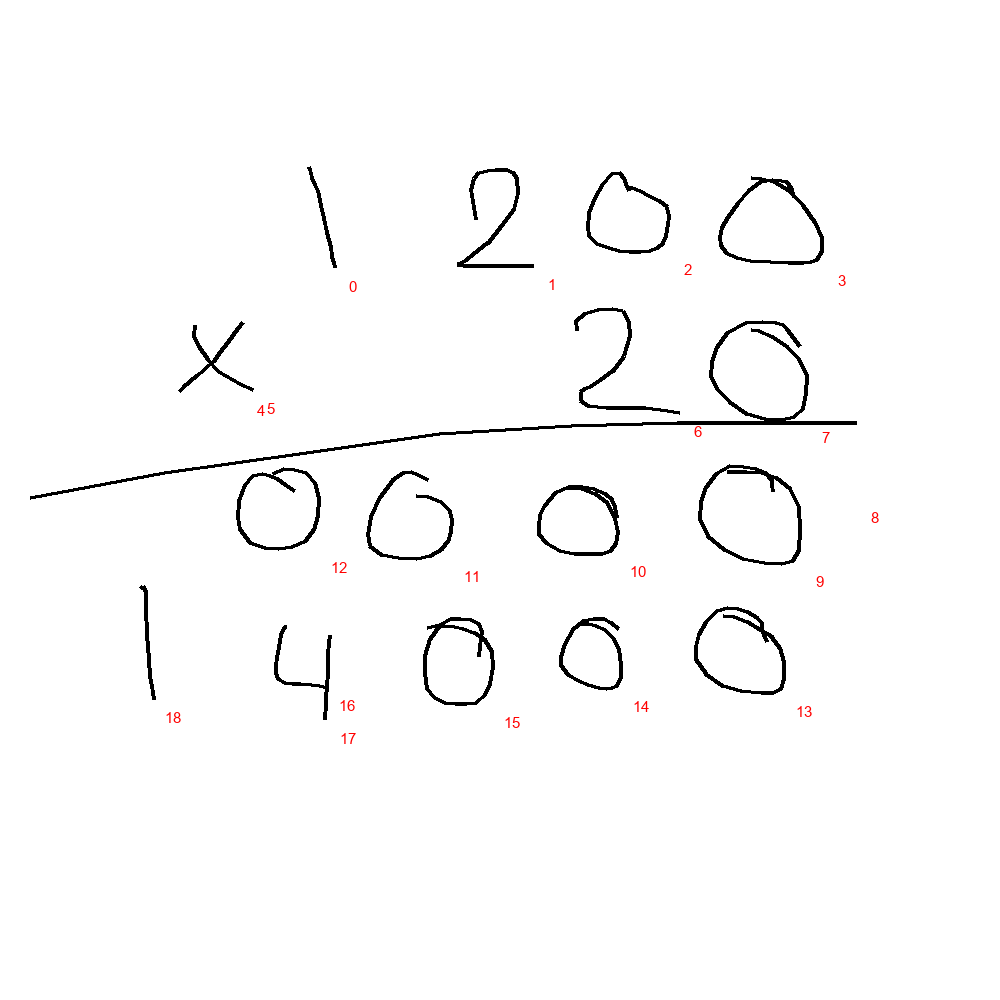 1 2 0 0
0 1 2 3
× 2 0
4 5 6 7
0 0 0 0
8
12 11 10 9
1 4 0 0 0
18 16 15 14 13
17